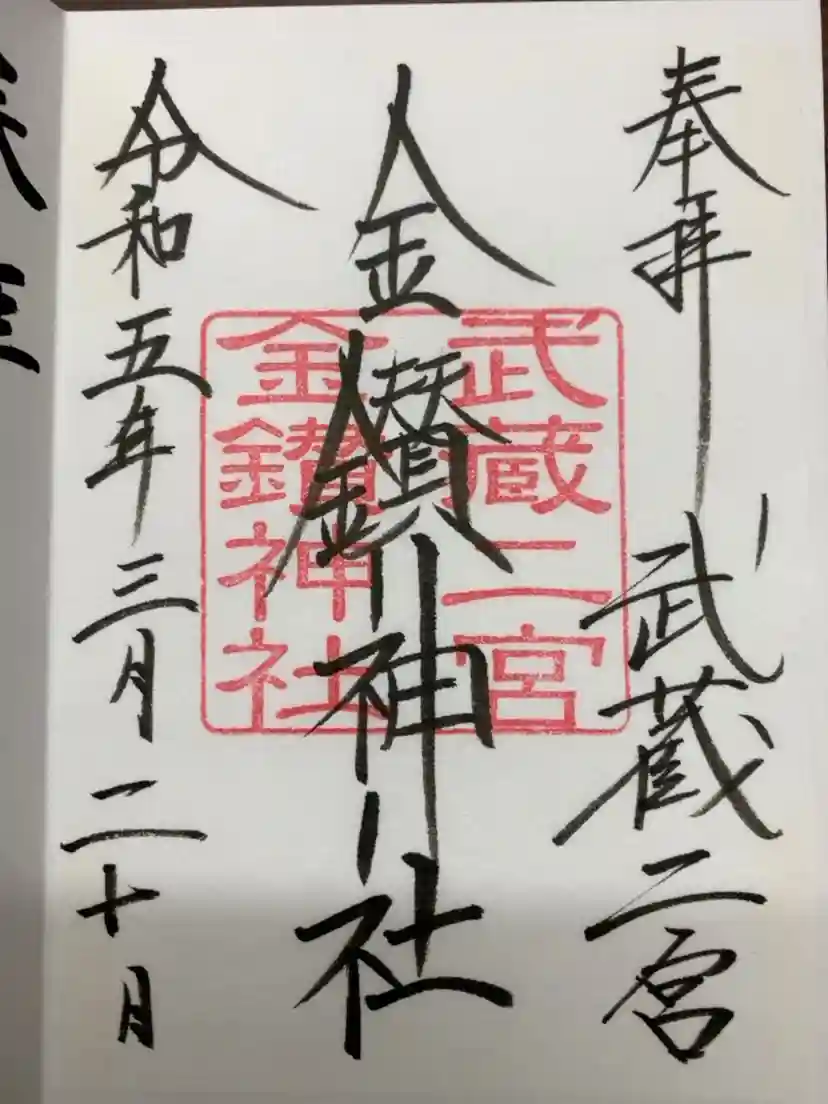 奉拝
武蔵二宮
金鑚神社
武蔵二宮
金鑚神社
令和五年三月二十月